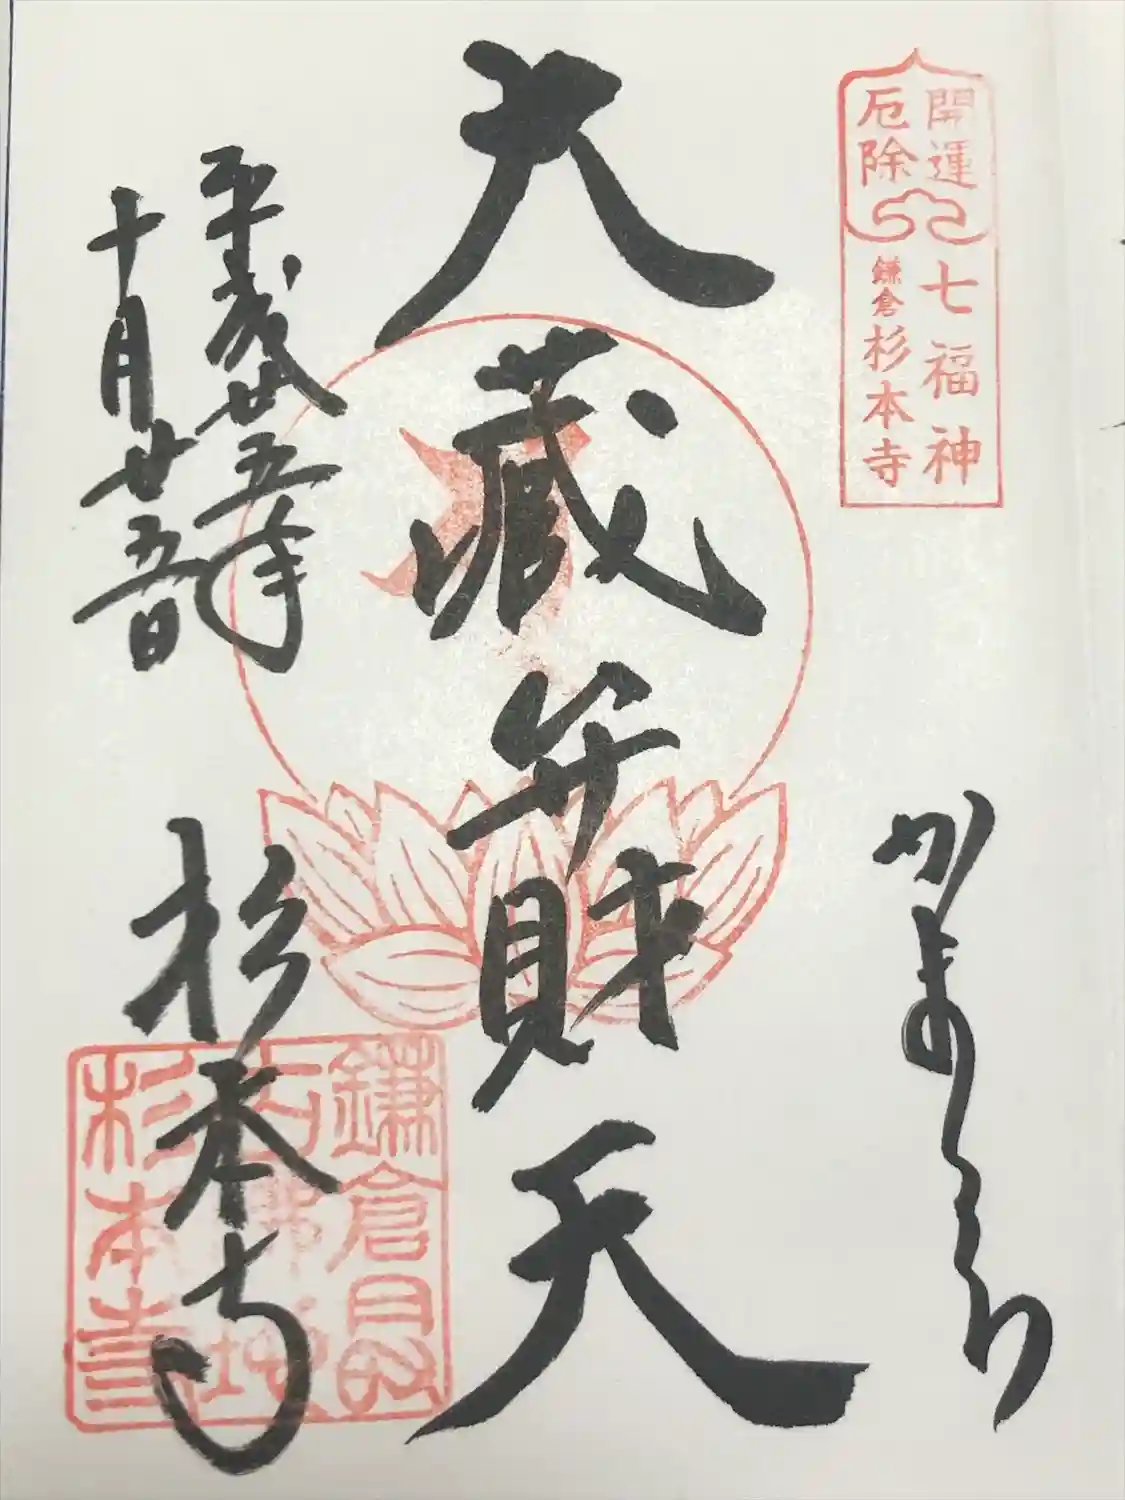 開運
厄除
七福神
鎌倉杉本寺
かまくら
大蔵弁財天
平成廿五年
十月廿五日
杉本寺
鎌倉最
古仏地
杉本寺